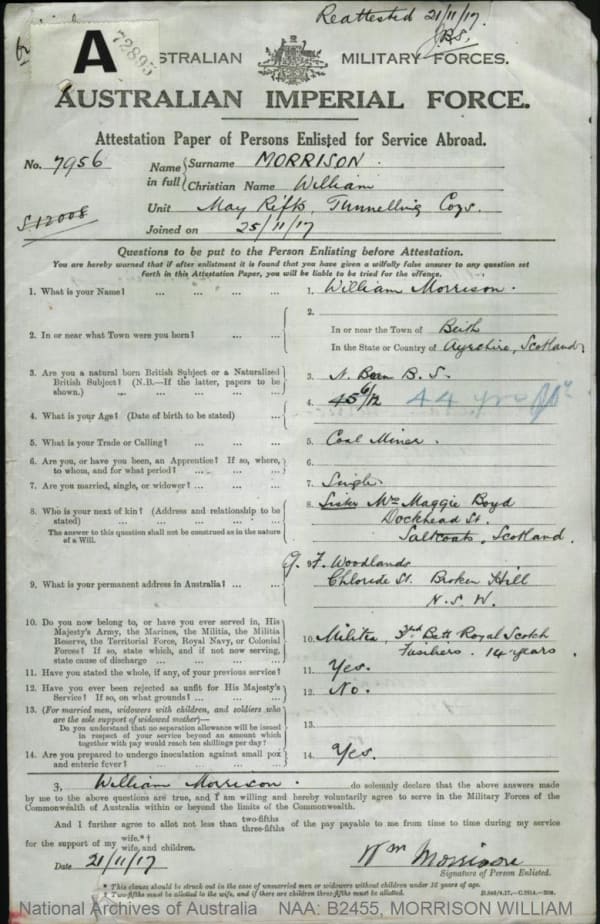 Reattested 21/11/17.
A
72895
AUSTRALIAN MILITARY FORCES.
AUSTRALIAN IMPERIAL FORCE.
Attestation Paper of Persons Enlisted for Service Abroad.
No. 7956
Name in full
Surname MORRISON.
Christian Name William
Unit May Rifts, Tunnelling Coys.
S12008
Joined on 25/11/17
Questions to be put to the Person Enlisting before Attestation.
You are hereby warned that if after enlistment it is found that you have given a wilfully false answer to any question set
forth in this Attestation Paper, you will be liable to be tried for the offence.
1. What is your Name? ... ... ... ...
1. William Morrison.
2. In or near what Town were you born? ... ...
2.
In or near the Town of Beith
In the State or Country of Ayrshire, Scotland
3. Are you a natural born British Subject or a Naturalized
British Subject? (N.B.—If the latter, papers to be
shown.) ... ... ... ...
3. N. Born B. S.
4. What is your Age? (Date of birth to be stated) ...
4. 45 6/12 44 yrs
5. What is your Trade or Calling? ... ... ...
5. Coal Miner.
6. Are you, or have you been, an Apprentice? If so, where,
to whom, and for what period? ... ... ...
6.
7. Are you married, single, or widower? ... ... ...
7. Single
8. Who is your next of kin? (Address and relationship to be
stated) ... ... ... ... ...
The answer to this question shall not be construed as in the nature
of a Will.
8. Sister Mrs Maggie Boyd
Dockhead St.
Saltcoats, Scotland.
9. What is your permanent address in Australia? ... ...
9. F. Woodlands
Chloride St. Broken Hill
N. S. W.
10. Do you now belong to, or have you ever served in, His
Majesty's Army, the Marines, the Militia, the Militia
Reserve, the Territorial Force, Royal Navy, or Colonial
Forces? If so, state which, and if not now serving,
state cause of discharge ... ... ... ...
10. Militia, 3rd Batt Royal Scotch
Fusiliers. 14 years.
11. Have you stated the whole, if any, of your previous service?
11. Yes.
12. Have you ever been rejected as unfit for His Majesty's
Service? If so, on what grounds? ... ... ...
12. No.
13. (For married men, widowers with children, and soldiers who
are the sole support of widowed mother)—
Do you understand that no separation allowance will be issued
in respect of your service beyond an amount which
together with pay would reach ten shillings per day?
13.
14. Are you prepared to undergo inoculation against small pox
and enteric fever? ... ... ... ...
14. Yes.
I, William Morrison. do solemnly declare that the above answers made
by me to the above questions are true, and I am willing and hereby voluntarily agree to serve in the Military Forces of the
Commonwealth of Australia within or beyond the limits of the Commonwealth.
And I further agree to allot not less than two-fifths three-fifths of the pay payable to me from time to time during my service
for the support of my wife.*† wife, and children.
Date 21/11/17
Wm Morrison
Signature of Person Enlisted.
* This clause should be struck out in the case of unmarried men or widowers without children under 18 years of age.
† Two-fifths must be allotted to the wife, and if there are children three-fifths must be allotted.
National Archives of Australia NAA: B2455, MORRISON WILLIAM